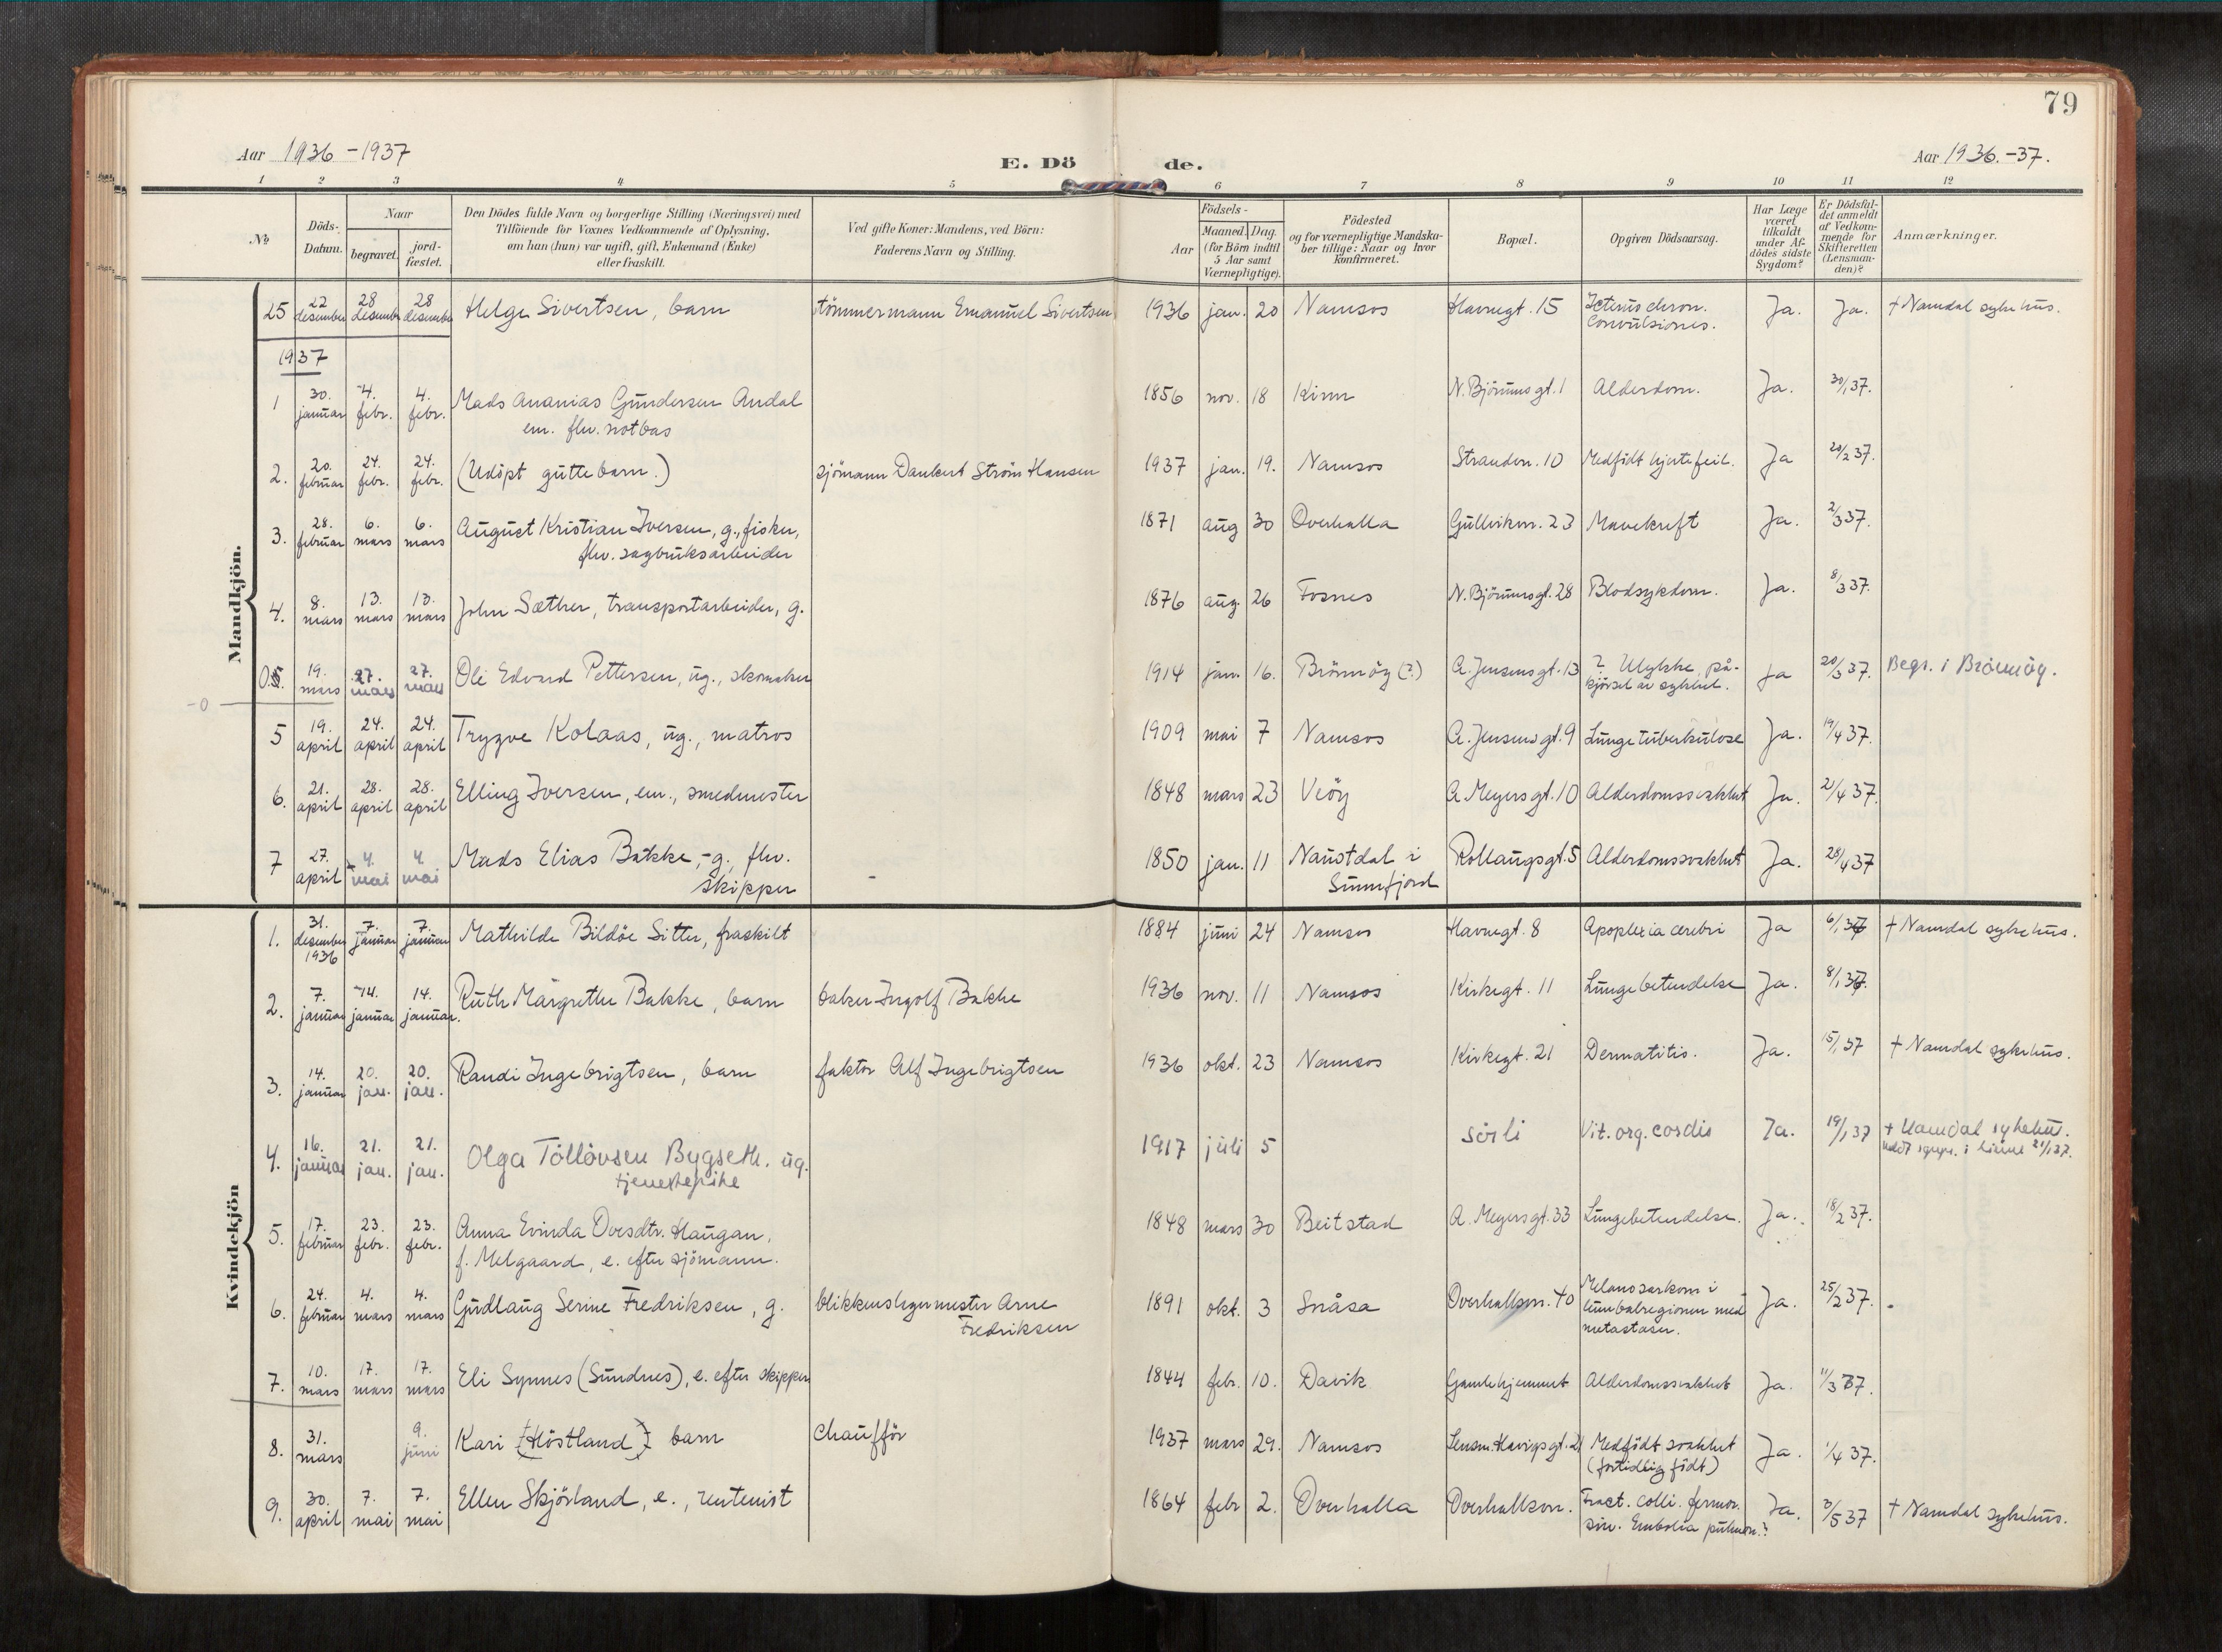 79
Aar 1936 - 1937
E. Dö de.
Aar 1936.-37.
1 2 3 4 5 6 7 8 9 10 11 12
No
Döds-Datum.
Naar
begravet.
jordfæstet.
Den Dödes fulde Navn og borgerlige Stilling (Næringsvei) med
Tilföiende for Voxnes Vedkommende af Oplysning,
om han (hun) var ugift, gift, Enkemand (Enke)
eller fraskilt.
Ved gifte Koner: Mandens, ved Börn:
Faderens Navn og Stilling.
Födsels-
Aar
Maaned. Dag.
(for Börn indtil
5 Aar samt
Værnepligtige).
Födested
og for værnepligtige Mandskaber tillige: Naar og hvor
konfirmeret.
Bopæl.
Opgiven Dödsaarsag.
Har Læge
været
tilkaldt
under Afdödes sidste
Sygdom?
Er Dödsfaldet anmeldt
af Vedkommende for
Skifteretten
(Lensmanden)?
Anmærkninger.
Mandkjön.
25 22 desember 28 desember 28 desember Helge Sivertsen, barn tömmermann Emanuel Sivertsen 1936 jan. 20 Namsos Havnegt. 15 Icterus chron. Convulsiones. Ja. Ja. + Namdal sykehus.
1937
1 30. januar 4. febr. 4. febr. Mads Ananias Gundersen Andal
em. flv. notbas 1856 nov. 18 Kinn N. Bjørumsgt. 1 Alderdom. Ja. 30/1 37.
2. 20. februar 24. febr. 24. febr. (Udöpt guttebarn.) sjömann Dankert Ström Hansen 1937 jan. 19. Namsos Strandvn. 10 Medfödt hjertefeil. Ja 20/2 37.
3. 28. februar 6. mars 6. mars August Kristian Iversen, g., fisker,
flv. sagbruksarbeider 1871 aug 30 Overhalla Gullvikvn. 23 Mavekreft Ja. 2/3 37.
4. 8. mars 13. mars 13. mars John Sæther, transportarbeider, g. 1876 aug. 26 Fosnes N. Bjørumsgt. 28 Blodsykdom. Ja. 8/3 37.
05. 19. mars 27. mars 27. mars Ole Edvard Pettersen, ug., skomaker 1914 jan. 16. Brönnöy (?) A. Jensensgt. 13 ? Ulykke, påkjörsel av sykkel. Ja 20/3 37. Begr. i Brönnöy.
- 0
5 19. april 24. april 24. april Trygve Kolaas, ug., matros 1909 mai 7 Namsos A. Jensensgt. 9 Lungetuberkulose Ja. 19/4 37.
6. 21. april 28. april 28. april Elling Iversen, em., smedmester 1848 mars 23 Veöy A. Meyersgt. 10 Alderdomssvakhet Ja. 21/4 37.
7 27. april 4. mai 4. mai Mads Elias Bakke, g., flv.
skipper 1850 jan. 11 Naustdal i
Sunnfjord Rollaugsgt. 5 Alderdomssvakhet Ja. 28/4 37
Kvindekjön
1. 31. desember 1936 7. januar 7. januar Mathilde Bildöe Sitter, fraskilt 1884 juni 24 Namsos Havnegt. 8 Apoplexia cerebri Ja 6/1 37 + Namdal sykehus.
2. 7. januar 14. januar 14. januar. Ruth Margrethe Bakke, barn baker Ingolf Bakke 1936 nov. 11 Namsos Kirkegt. 11 Lungebetendelse Ja. 8/1 37.
3. 14. januar 20. jan. 20. jan. Randi Ingebrigtsen, barn faktor Alf Ingebrigtsen 1936 okt. 23 Namsos Kirkegt. 21 Dermatitis. Ja. 15/1 37 + Namdal sykehus.
4. 16. januar 21. jan. 21. jan. Olga Töllövsen Bygseth. ug.
tjenestepike 1917 juli 5 Sörli Vit. org. cordis Ja. 19/1 37 + Namdal sykehus.
21/1 37.
5. 17. februar 23. febr. 23. febr. Anna Evinda Ovesdtr. Haugan,
f. Melgaard, e. efter sjömann. 1848 mars 30 Beitstad A. Meyersgt. 33 Lungebetendelse. Ja. 18/2 37.
6. 24. februar 4. mars 4. mars Gudlaug Serine Fredriksen, g. blikkenslagermester Arne
Fredriksen 1891 okt. 3 Snåsa Overhallsvn. 40 Melanosarkom i
lumbalregionen med
metastaser. Ja. 25/2 37.
7. 10. mars 17. mars 17. mars Eli Synnes (Sundnes), e. efter skipper 1844 febr. 10. Davik Gamlehjemmet Alderdomssvakhet Ja. 11/3 37.
8. 31. mars 9. juni Kari (Höstland) barn chauffør 1937 mars 29. Namsos Lensm. Havigsgt. 21 Medfödt svakhet
(fortidlig födt) Ja. 1/4 37.
9. 30. april 7. mai 7. mai Ellen Skjörland, e., rentenist 1864 febr 2. Overhalla Overhallsvn. Fract. colli. femor.
sin. Embolia pulmon.? Ja. 3/5 37 + Namdal sykehus.